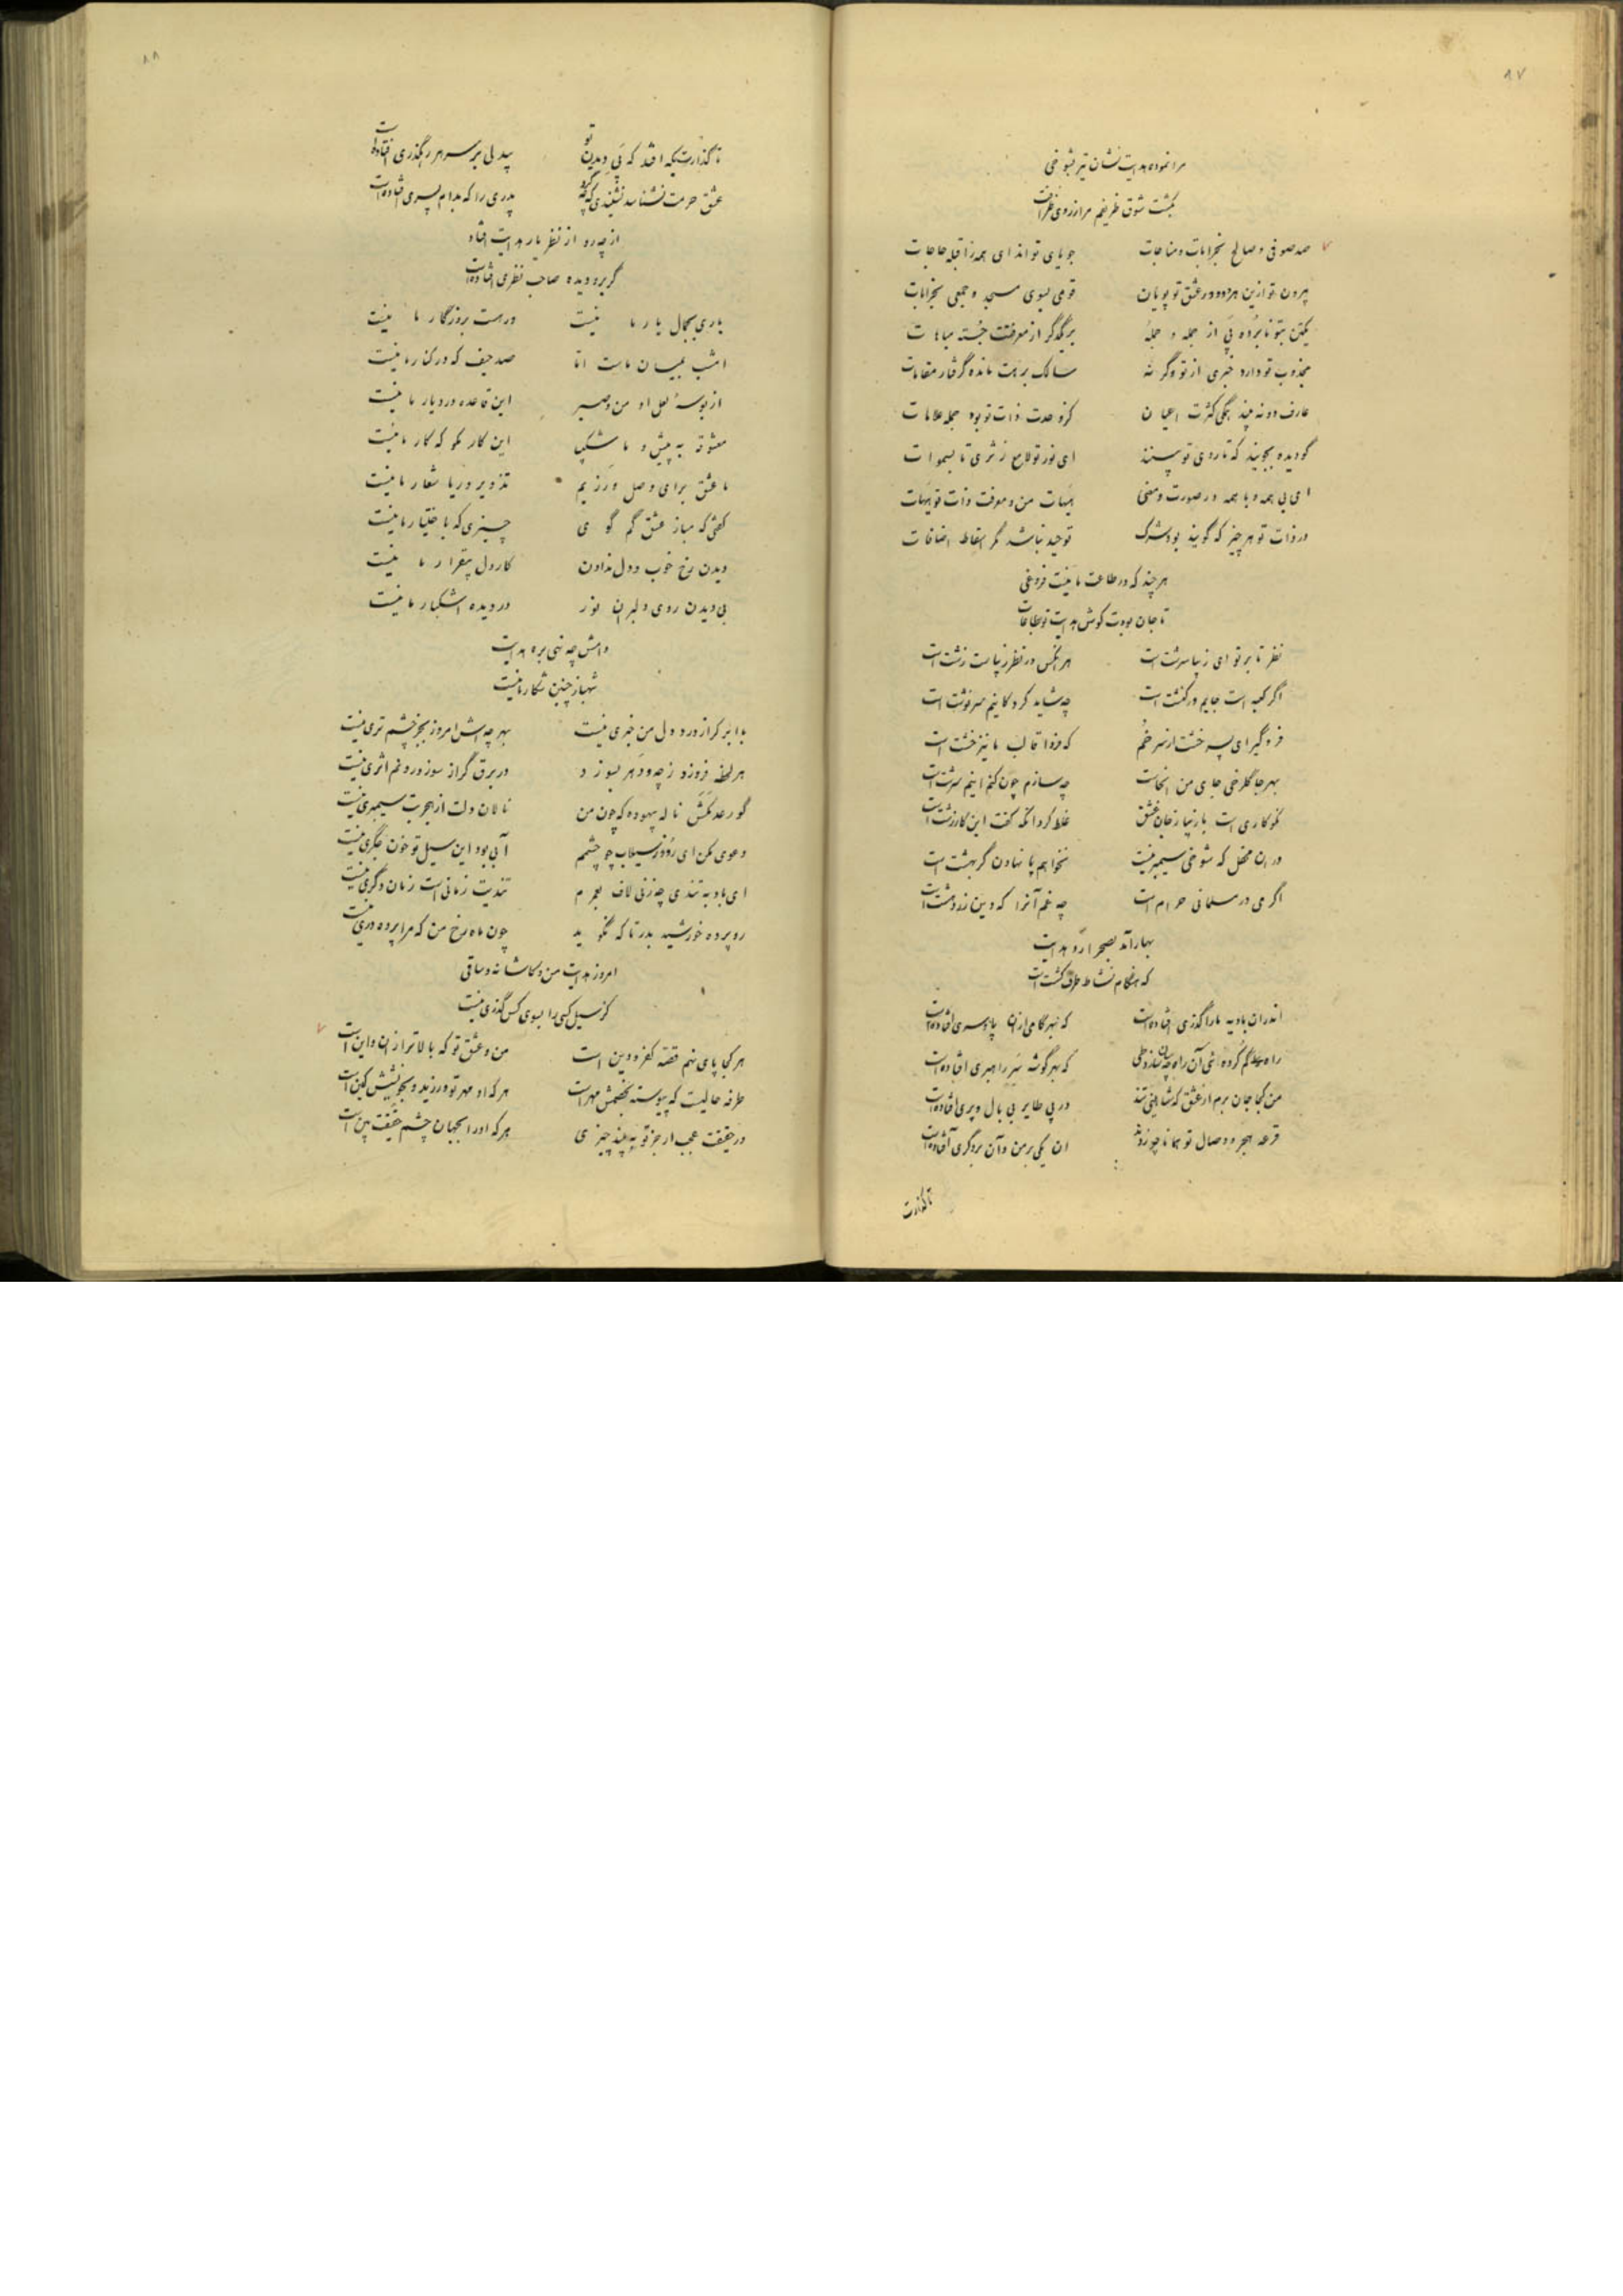 ۸۷
مرا نموده هدایت نشان تیر بشوخی
بکشت شوق ظریفم مرا ز روی ظرافت
صد صوفی و صالح بخرابات و مناجات جویای تواند ای همه را قبله حاجات
بیرون تو ازین هر دو و در عشق تو پویان قومی بسوی مسجد و جمعی بخرابات
یکتن بتو نابرده پی از جمله و جمله بر یکدگر از معرفتت جسته مباهات
مجذوب تو دارد خبری از تو وگرنه سالک برهت مانده گرفتار مقامات
عارف دو نه بیند بیکی کثرت اعیان کز وحدت ذات تو بود جمله علامات
گو دیده بجویند که تا روی تو بینند ای نور تو لامع ز ثری تا بسموات
ای بی همه و با همه در صورت و معنی هیهات من و معرفت ذات تو هیهات
در ذات تو هر چیز که گویند بود شرک توحید نباشد مگر اسقاط اضافات
هر چند که در طاعت ما نیست فروغی
تا جان بودت کوش هدایت تو بطاعات
نظر تا بر تو ای زیبا سرشت است هر آنکس در نظر زیباست زشت است
اگر کعبه است جایم ور کنشت است چه شاید کرد کاینم سرنوشت است
فرو گیر ای پسر خشت از سر خم که فردا قالب ما نیز خشت است
بهر جا گلرخی جای من آنجاست چه سازم چون کنم اینم سرشت است
نکوکاری است با زیبا رخان عشق غلط کرد آنکه گفت این کار زشت است
در ان محفل که شوخی سیمبر نیست نخواهم پا نهادن گر بهشت است
اگر می در مسلمانی حرام است چه غم آنرا که دین زردهشت است
بهار آمد بصحرا رو هدایت
که هنگام نشاط طرف کشت است
اندران بادیه ما را گذری افتاده است که بهر گامی ازان پا و سری افتاده است
راه گم کرده ای آن راه چسان سازد طی که بهر گوشه سر راهبری افتاده است
من کجا جان برم از عشق که شاهینی تند در پی طایر بی بال و پری افتاده است
قرعه هجر و وصال تو همانا چو زدند ان یکی بر من و آن بر دگری افتاده است
تا گذارت
۸۸
تا گذارت بکه افتد که پی دیدن تو بیدلی بر سر هر رهگذری افتاده است
عشق حرمت نشناسد نشنیدی که چه کرد پدری را که بدام پسری افتاده است
از چه رو از نظر یار هدایت افتاد
گر برو دیده صاحب نظری افتاده است
یاری بجمال یار ما نیست ور هست بروزگار ما نیست
امشب بمیان ماست اما صد حیف که در کنار ما نیست
از بوسه لعل او من و صبر این قاعده در دیار ما نیست
معشوقه به پیش و ما شکیب این کار مگو که کار ما نیست
ما عشق برای وصل ورزیم تزویر و ریا شعار ما نیست
گفتی که مباز عشق گم گوی چیزی که باختیار ما نیست
دیدن رخ خوب و دل ندادن کار دل بیقرار ما نیست
بی دیدن روی دلبران نور در دیده اشکبار ما نیست
دامش چه نهی بره هدایت
شهباز چنین شکار ما نیست
با ابر گر از درد دل من خبری نیست بهر چه اش امروز بجز چشم تری نیست
هر لحظه فروزد ز چه و دهر بسوزد در برق گر از سوز درونم اثری نیست
گو رعد مکش ناله بیهوده که چون من نالان دلت از هجر بت سیمبری نیست
دعوی مکن ای رود ز سیلاب چو چشمم آبی بود این سیل تو خون جگری نیست
ای باد به تندی چه زنی لاف بعمرم تندیت زمانی است زمان دگری نیست
رو پرده خورشید بدر تا که نگوید چون ماه رخ من که مرا پرده دری نیست
امروز هدایت من و کاشانه و ساقی
کز سیل کسی را بسوی کس گذری نیست
هر کجا پای نهم قصه کفر و دین است من و عشق تو که بالاتر ازان و این است
طرفه حالیست که پیوسته بخصمش مهر است هر که او مهر تو ورزید و بخویشش کین است
در حقیقت عجب ار جز تو به بیند چیزی هر که او را بجهان چشم حقیقت بین است